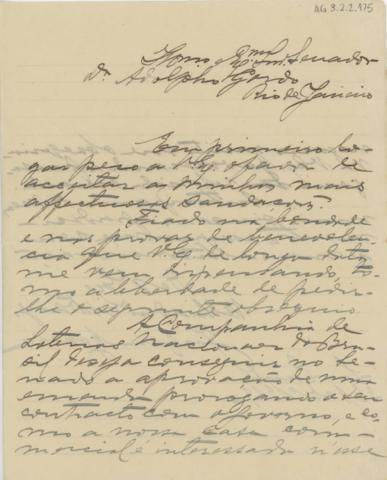 AG 3.2.2.175
Exmo Snr. Senador
Dr. Adolpho Gordo
Rio de Janeiro
Em primeiro lo-
gar peço a V. Ex. o favor de
acceitar as minhas mais
affectuosas saudações.
Fiado na bondade
e nas provas de benevolen-
cia que V. Ex. de longa data
me vem dispensando, to-
mo a liberdade de pedir-
lhe o seguinte obsequio
A Companhia de
Loterias Nacionaes do Bra-
sil deseja conseguir no Se-
nado a approvação de uma
emenda prorogando o seu
contracto com o Governo, e co-
mo a nossa casa com-
mercial é interessada n'esse